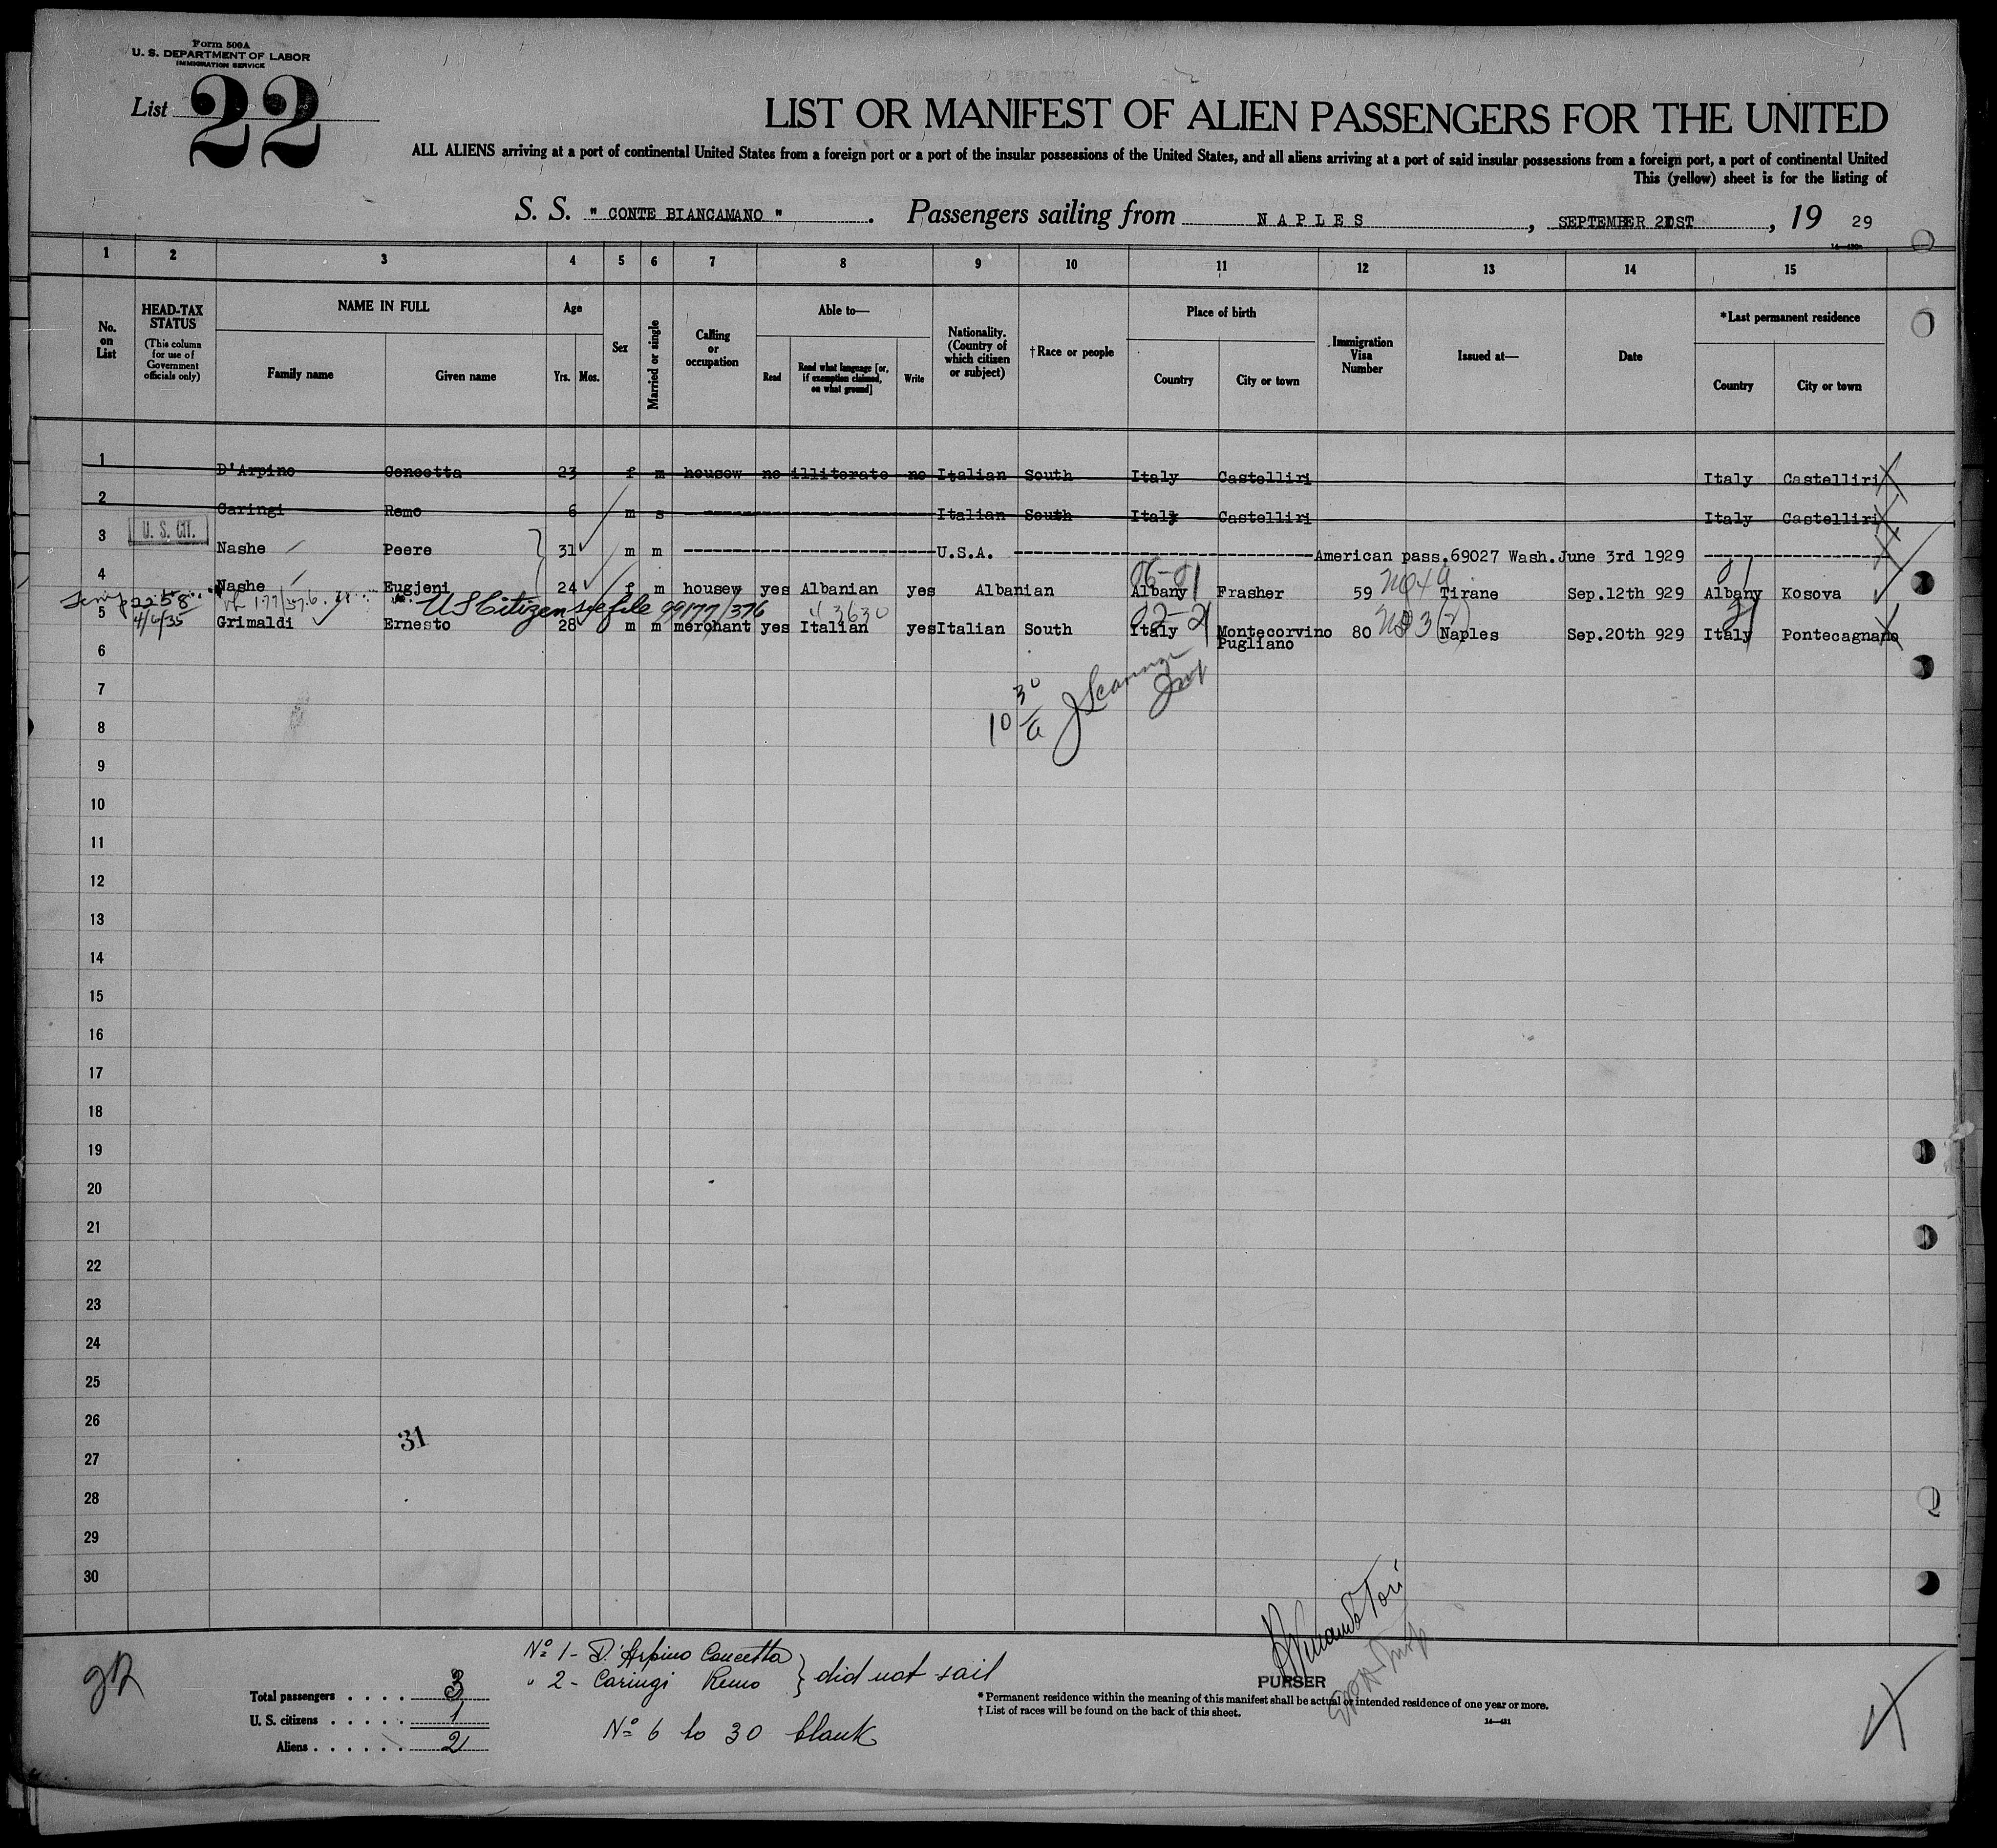 Form 500A
U. S. DEPARTMENT OF LABOR
IMMIGRATION SERVICE
List 22
LIST OR MANIFEST OF ALIEN PASSENGERS FOR THE UNITED
ALL ALIENS arriving at a port of continental United States from a foreign port or a port of the insular possessions of the United States, and all aliens arriving at a port of said insular possessions from a foreign port, a port of continental United
This (yellow) sheet is for the listing of
S. S. " CONTE BIANCAMANO " . Passengers sailing from NAPLES , SEPTEMBER 21ST , 19 29
1 2 3 4 5 6 7 8 9 10 11 12 13 14 15
No. on List
HEAD-TAX STATUS
(This column for use of Government officials only)
NAME IN FULL
Family name Given name
Age
Yrs. Mos.
Sex
Married or single
Calling or occupation
Able to—
Read
Read what language [or, if exemption claimed, on what ground]
Write
Nationality. (Country of which citizen or subject)
†Race or people
Place of birth
Country City or town
Immigration Visa Number
Issued at—
Date
*Last permanent residence
Country City or town
1 D'Arpino Concetta 23 f m housew no illiterate no Italian South Italy Castelliri Italy Castelliri
2 Caringi Remo 6 m s Italian South Italy Castelliri Italy Castelliri
U. S. CIT.
3 Nashe Peere 31 m m U.S.A. American pass.69027 Wash.June 3rd 1929
4 Nashe Eugjeni 24 f m housew yes Albanian yes Albanian Albany Frasher 59 Tirane Sep.12th 929 Albany Kosova
06-01
US Citizen see file 99177/376
4/6/35
43630
02-2
5 Grimaldi Ernesto 28 m m merchant yes Italian yes Italian South Italy Montecorvino Pugliano 80 Naples Sep.20th 929 Italy Pontecagnano
6
7
8
10 30/a
9
10
11
12
13
14
15
16
17
18
19
20
21
22
23
24
25
26
31
27
28
29
30
No 1 - D'Arpino Concetta
" 2 - Caringi Remo } did not sail
No 6 to 30 blank
Total passengers . . . . 3
U. S. citizens . . . . . 1
Aliens . . . . . . 2
PURSER
* Permanent residence within the meaning of this manifest shall be actual or intended residence of one year or more.
† List of races will be found on the back of this sheet.
14—431